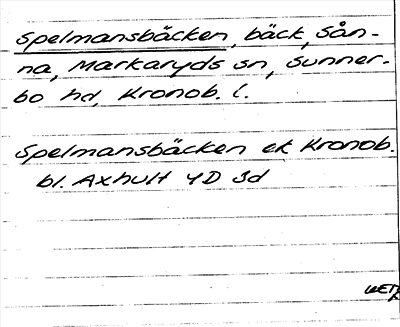 Spelmansbäcken, bäck, Sån-
na, Markaryds sn, Sunner-
bo hd, Kronob. l.
Spelmansbäcken ek Kronob.
bl. Axhult 4D 3d